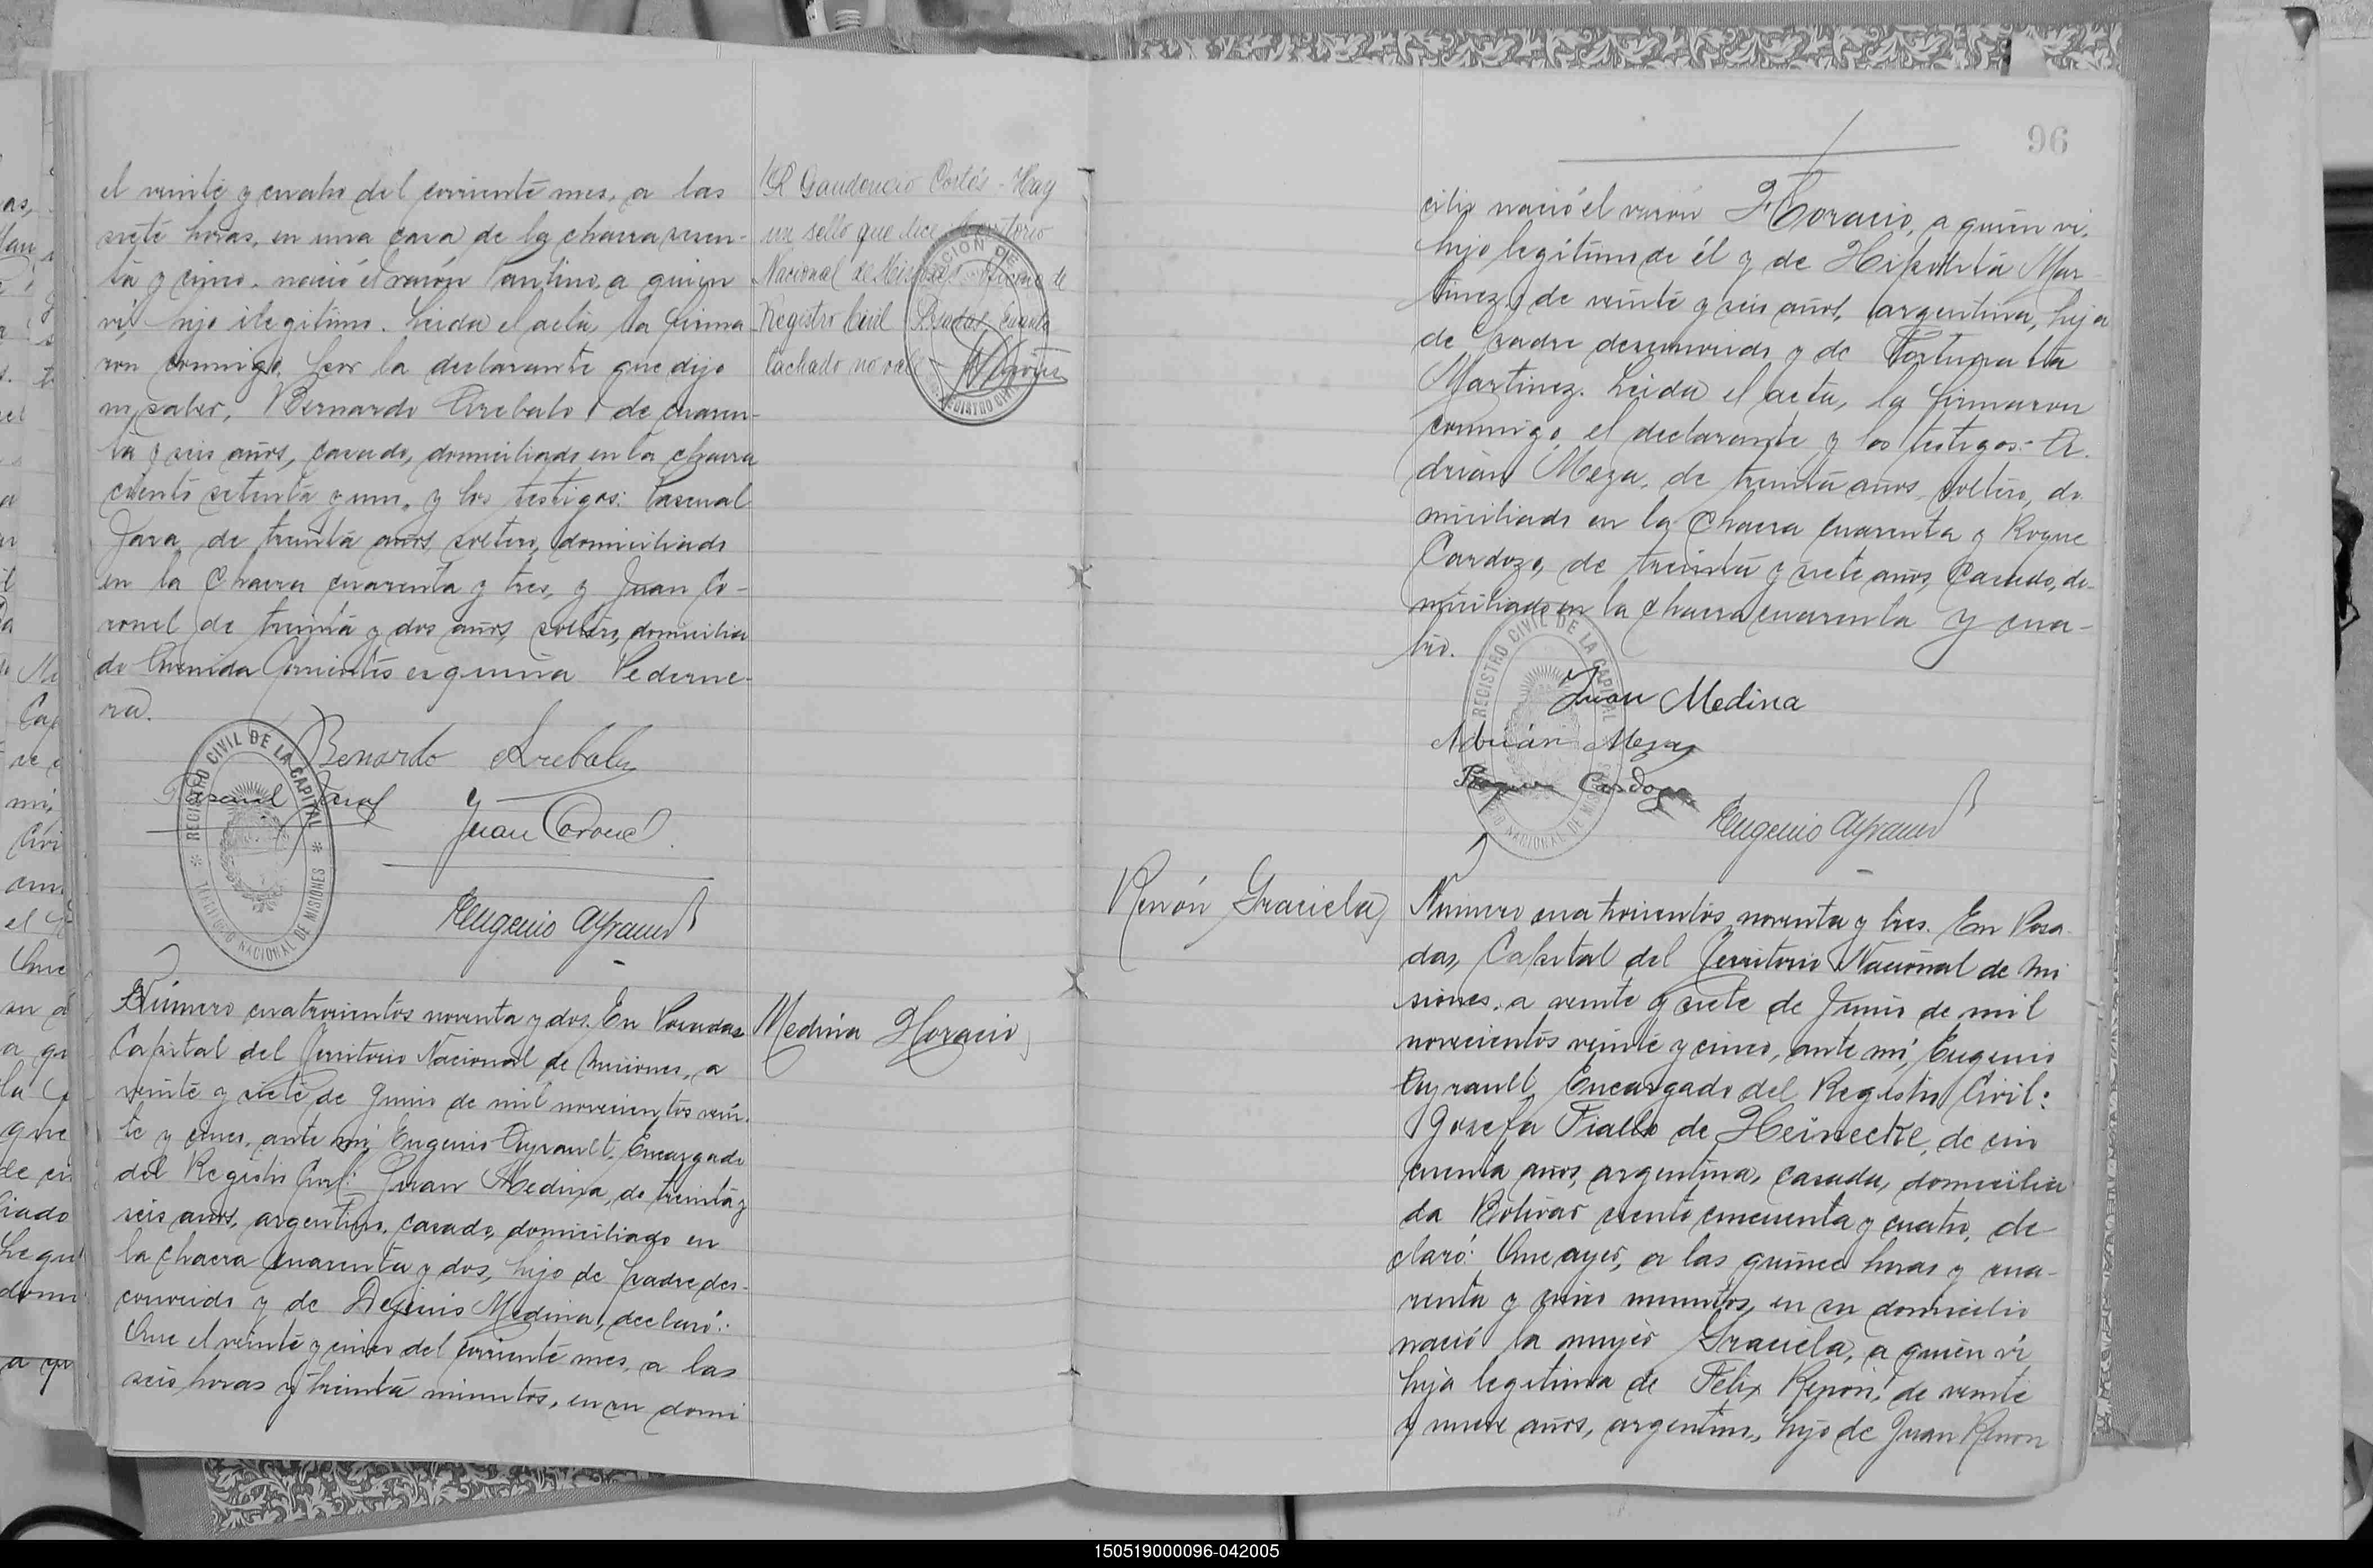 el veinte y cuatro del corriente mes, a las
siete horas, en una casa de la chacra seten-
ta y cinco, nació el varón Santino, a quien
ví, hijo ilegitimo. Leida el acta, la firma
ron conmigo, por la declarante que dijo
no saber, Bernardo Arebalo, de cuaren-
ta y seis años, casado, domiciliado en la chacra
ciento setenta y uno, y los testigos: Pascual
Jara, de treinta años, soltero, domiciliado
en la Chacra cuarenta y tres, y Juan Co-
ronel de treinta y dos años, soltero, domicilia
do Avenida Corrientes esquina Pederne-
ra.
Bernardo Arebalo
Pascual Jara
Juan Coronel
Eugenio Ayrault
REGISTRO CIVIL DE LA CAPITAL
TERRITORIO NACIONAL DE MISIONES
Número cuatrocientos noventa y dos. En Posadas
Capital del Territorio Nacional de Misiones, a
veinte y siete de Junio de mil novecientos vein-
te y cinco, ante mí, Eugenio Ayrault, Encargado
del Registro Civil: Juan Medina, de treinta y
seis años, argentino, casado, domiciliado en
la chacra cuarenta y dos, hijo de padre des-
conocido y de Medina, declaró:
Que el veinte y cinco del corriente mes, a las
seis horas y treinta minutos, en su domi
Gaudencio Cortés - Hay
un sello que dice Territorio
Nacional de Misiones Oficina de
Registro Civil Posadas
tachado no vale
REGISTRO CIVIL
Medina Horacio
96
cilio nació el varón Horacio, a quien ví,
hijo legítimo de él y de Hipólita Mar
tinez, de veinte y seis años, argentina, hija
de padre desconocido y de
Martinez. Leida el acta, la firmaron
conmigo, el declarante y los testigos: A.
drián Meza, de treinta años, soltero, do
miciliado en la Chacra cuarenta y Roque
Cardozo, de treinta y siete años, Casado, do-
miciliado en la chacra cuarenta y cua-
tro.
Juan Medina
Adrián Meza
Roque Cardozo
Eugenio Ayrault
REGISTRO CIVIL DE LA CAPITAL
TERRITORIO NACIONAL DE MISIONES
Renón Graciela
Número cuatrocientos noventa y tres. En Posa
das, Capital del Territorio Nacional de Mi
siones, a veinte y siete de Junio de mil
novecientos veinte y cinco, ante mí, Eugenio
Ayrault Encargado del Registro Civil:
Josefa Fiallo de Heinecke, de cin
cuenta años, argentina, casada, domicilia
da Bolivar ciento cincuenta y cuatro, de
claró: Que ayer, a las quince horas y cua-
renta y cinco minutos, en su domicilio
nació la mujer Graciela, a quien ví,
hija legitima de Félix Renón, de veinte
y nueve años, argentino, hijo de Juan Renon
150519000096-042005